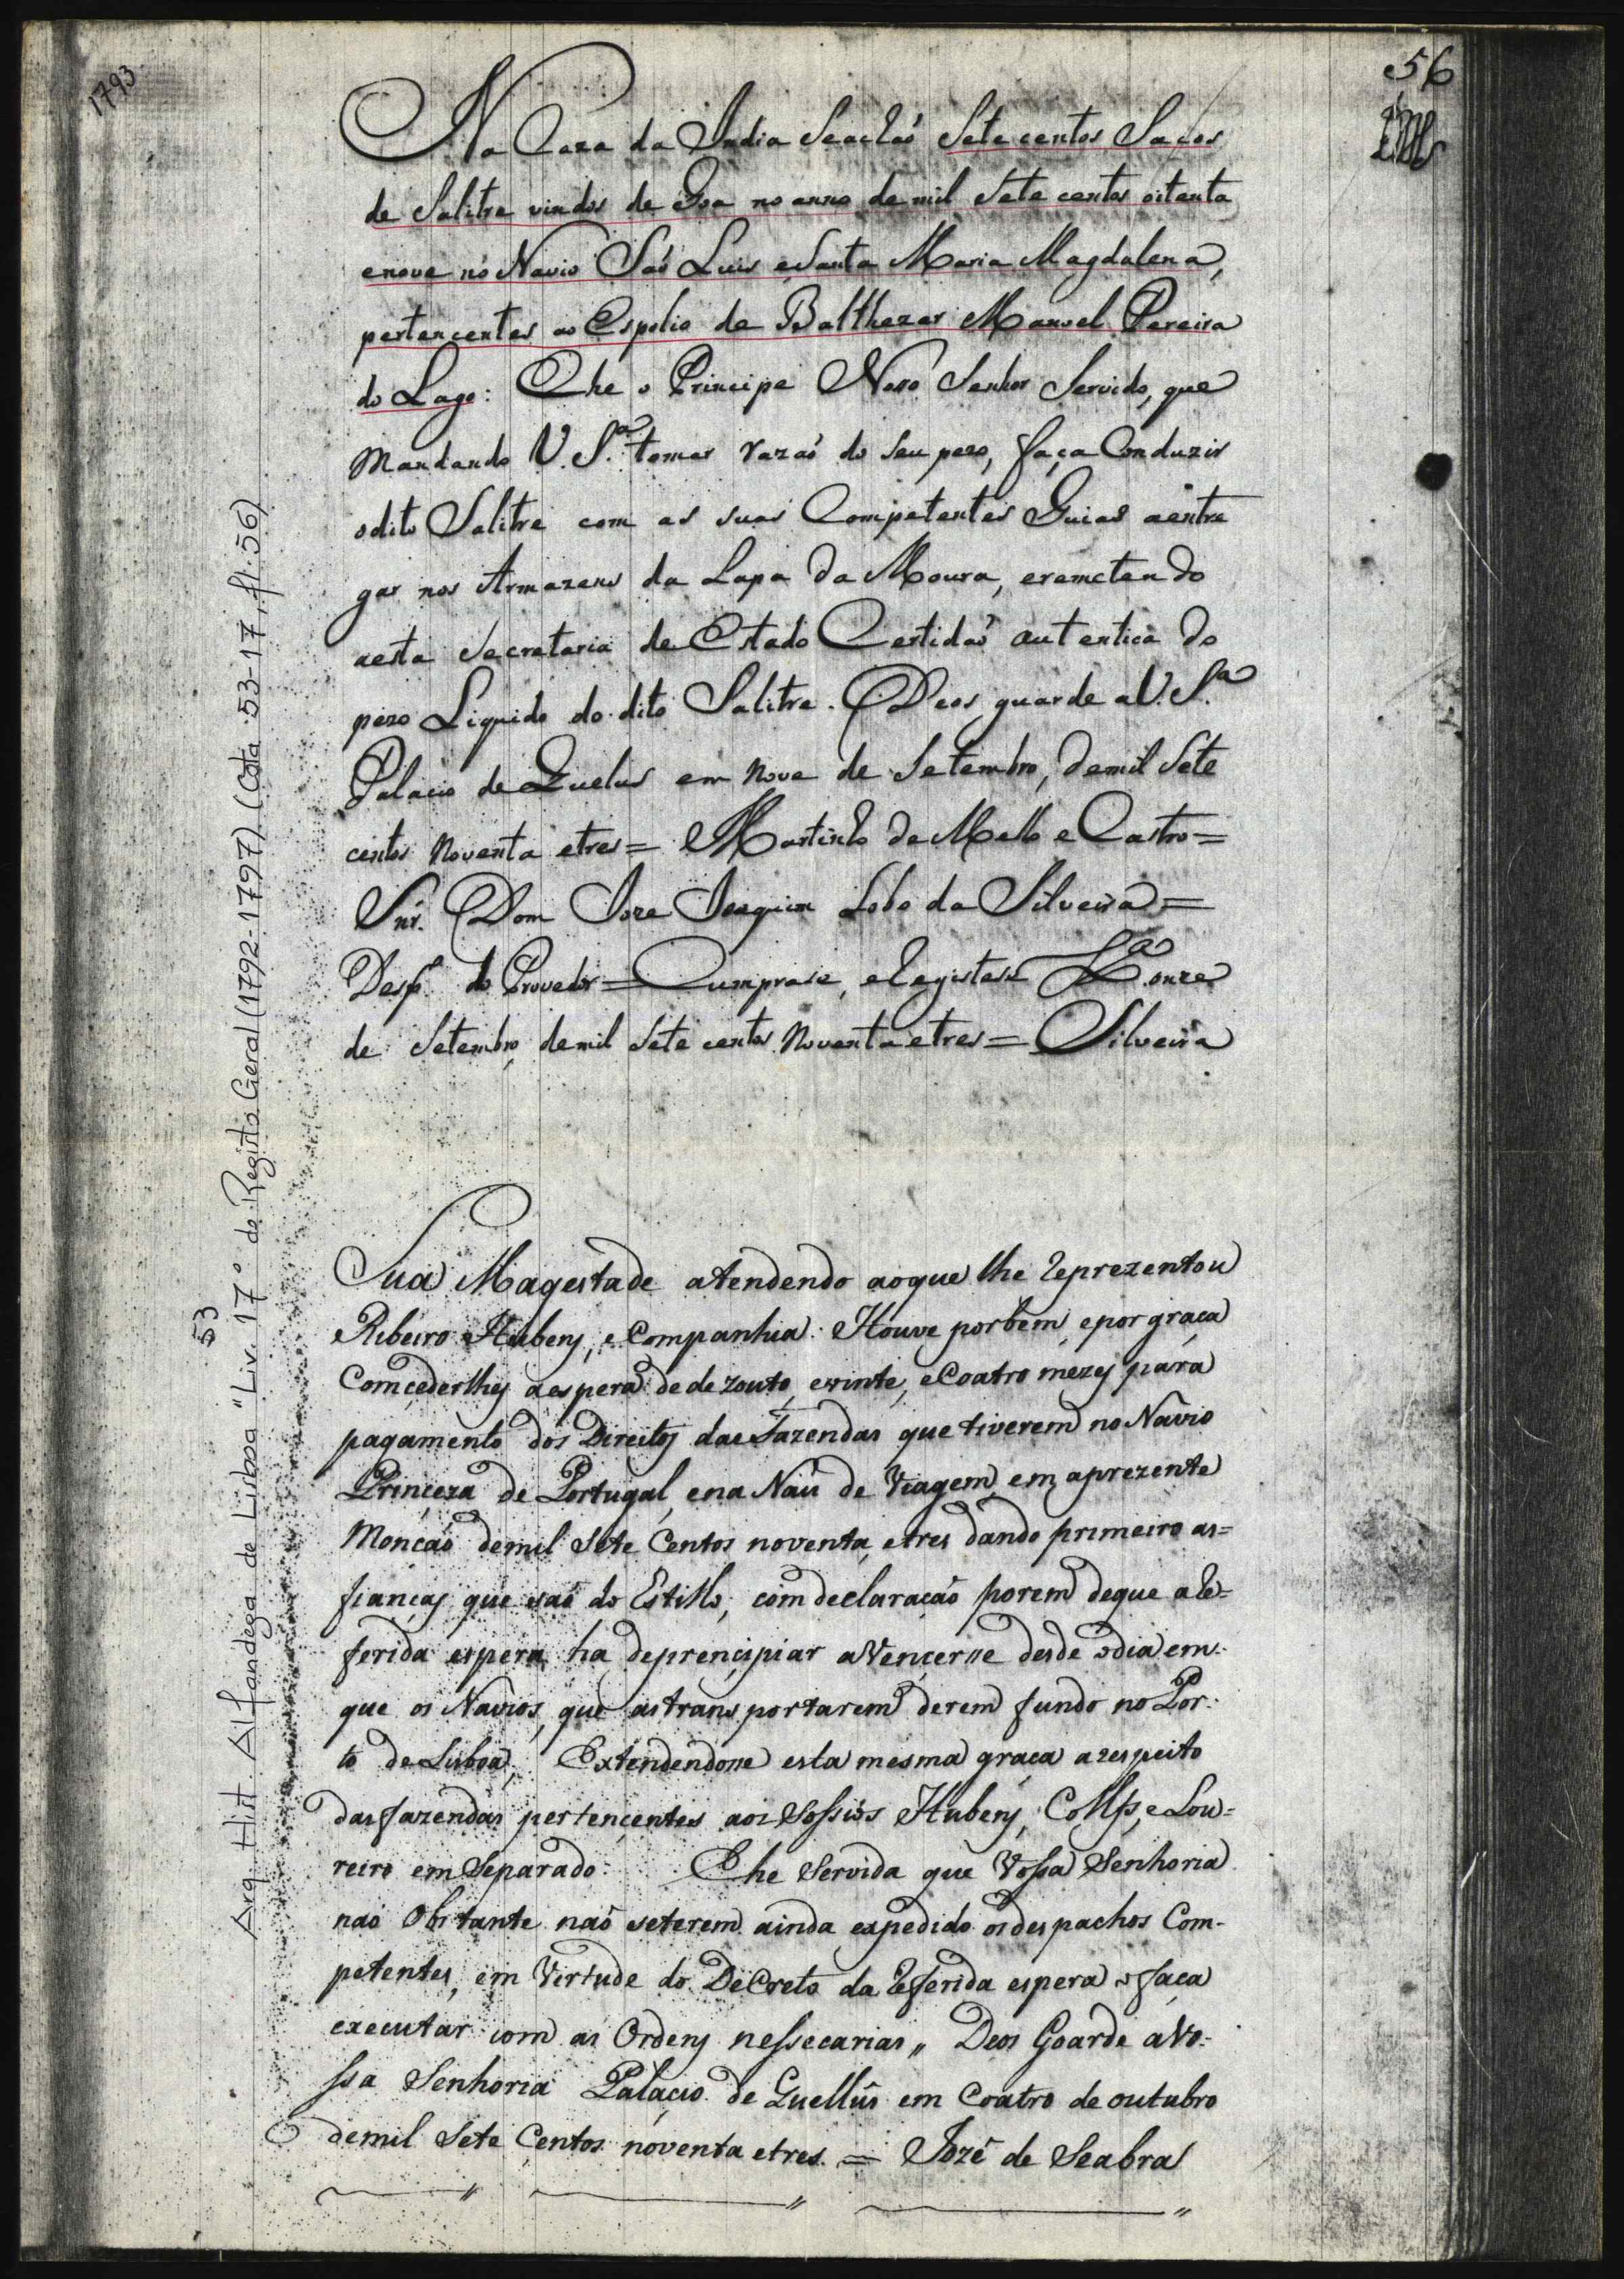 1793
56
Na Caza da India Seachaõ Sete centos Sacos
de Salitre vindos de Goa no anno de mil Sete centos oitenta
enove nó Navio Saõ Luis eSanta Maria Magdalena,
pertencentes ao Espolio de Balthezar Manoel Pereira
do Lago: E he o Principe Nosso Senhor Servido, que
Mandando V. S.ª tomar razaõ do Seu pezo, faça Conduzir
odito Salitre com as suas Competentes Guias aentre
gar nos Armazens da Lapa da Moura, eremetendo
aesta Secretaria de Estado Certidaõ autentica do
pezo Liquido do dito Salitre. Deos guarde aV. S.ª
Palacio de Quelus em Nove de Setembro, demil Sete
centos Noventa etres = Martinho de Mello e Castro =
Snr. Dom Joze Joaquim Lobo da Silveira =
Desp.º do Provedor = Cumprase, eRegistese Lx.ª onze
de Setembro demil Sete centos Noventa etres = Silveira
Sua Magestade atendendo aoque lhe Reprezentou
Ribeiro Hubens, eCompanhia: Houve porbem, epor graça
Comcederlhes aespera dedezouto, evinte, eCoatro mezes para
pagamento dos Direitos das Fazendas que tiverem no Navio
Princeza de Portugal, ena Náu de Viagem, em aprezente
Moncaõ demil Sete Centos noventa, etres dando primeiro as=
fianças que saõ do Estillo, com declaracaõ porem deque aRe-
ferida espera ha deprencipiar aVencerse desde odia em
que os Navios, que astransportarem derem fundo no Por-
to de Lisboa, Extendendose esta mesma graca arespeito
dasfazendas pertencentes aos Sossios Hubens, Colffs, eLou=
reiro em Separado: E he Servida que Vossa Senhoria
naõ Obstante naõ seterem ainda expedido osdespachos Com-
petentes, em Vertude do DeCreto da Referida espera ofaça
executar com as Ordens nessecarias „ Deos Goarde aVo-
ssa Senhoria Palacio de Quellûs em Coatro de outubro
demil Sete Centos noventa etres. = Jozé de Seabra
Arq. Hist. Alfandega de Lisboa "Liv. 17º de Registo Geral (1792-1797) (Cota 53-17, fl. 56)
53